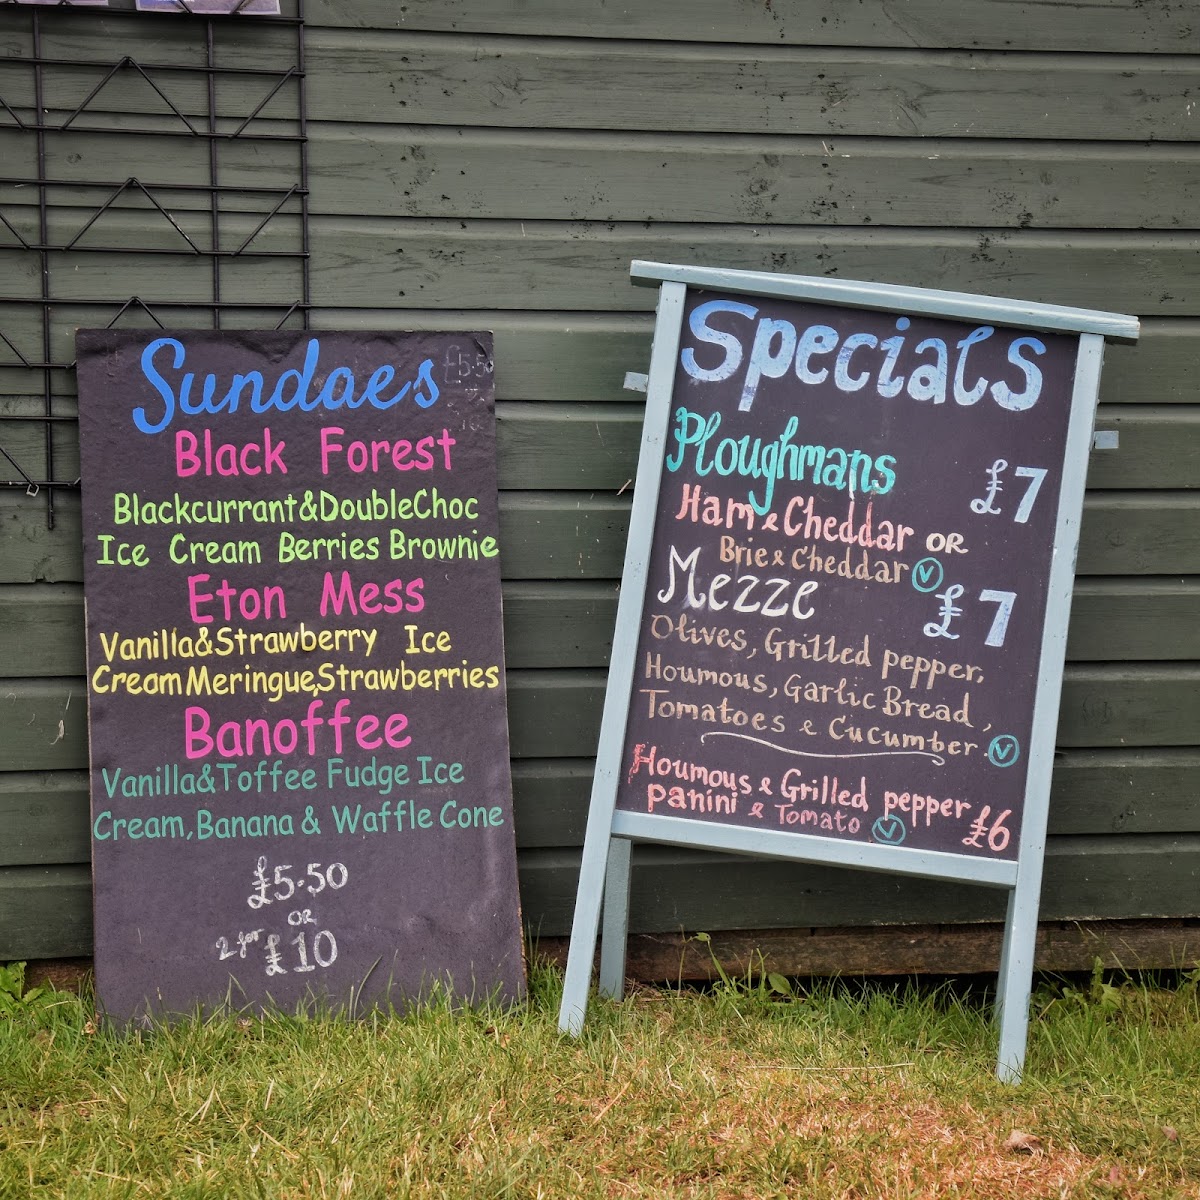 Sundaes
£5.50
Black Forest
Blackcurrant&DoubleChoc
Ice Cream Berries Brownie
Eton Mess
Vanilla&Strawberry Ice
Cream Meringue,Strawberries
Banoffee
Vanilla&Toffee Fudge Ice
Cream, Banana & Waffle Cone
£5.50
OR
2 for £10
Specials
Ploughmans £7
Ham & Cheddar OR
Brie & Cheddar V
Mezze £7
Olives, Grilled pepper,
Houmous, Garlic Bread,
Tomatoes & Cucumber V
Houmous & Grilled pepper
panini & Tomato V £6